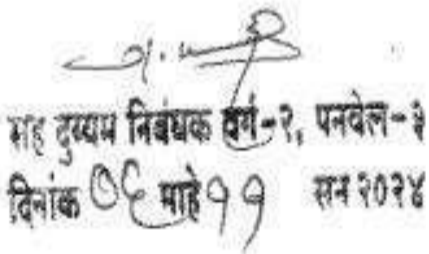 सह दुय्यम निबंधक वर्ग-२, पनवेल-३
दिनांक ०६ माहे ११ सन २०२४